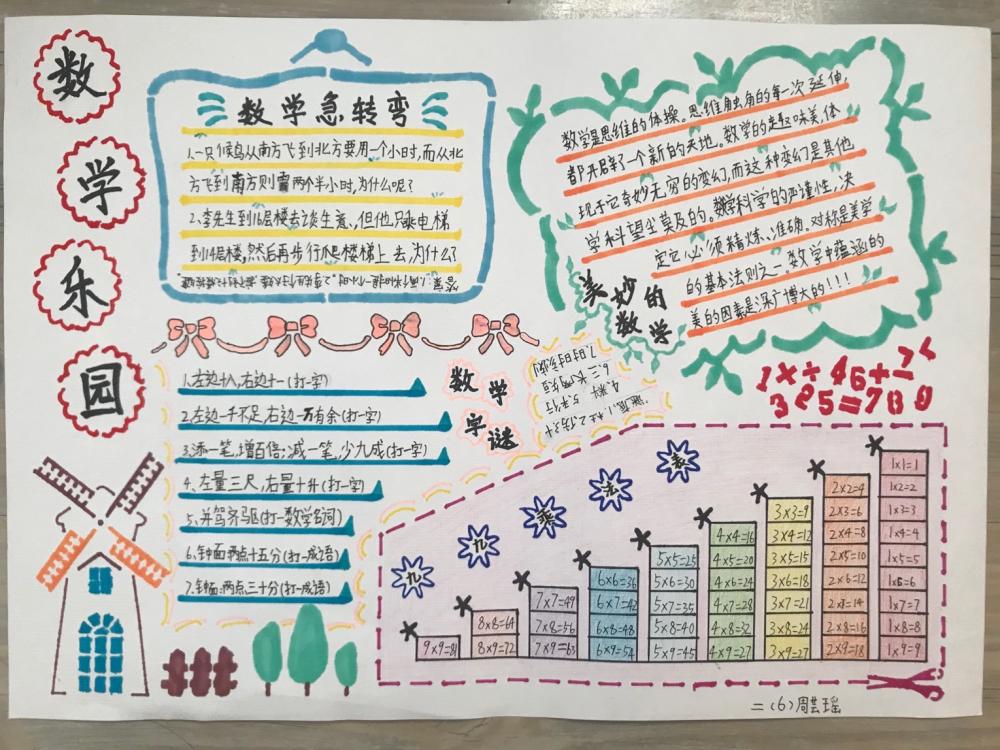 数学乐园
数学急转弯
1.一只候鸟从南方飞到北方要用一个小时,而从北
方飞到南方则需两个半小时,为什么呢?
2、李先生到16层楼去谈生意,但他只乘电梯
到14层楼,然后再步行爬楼梯上去,为什么?
数学是思维的体操。思维触角的每一次延伸,
都开辟了一个新的天地。数学的趣味美,体
现于它奇妙无穷的变幻,而这种变幻是其他
学科望尘莫及的。数学科学的严谨性,决
定它必须精炼、准确。对称是美学
的基本法则之一,数学中蕴涵的
美的因素是深广博大的!!!
美妙的
数学
数学
字谜
1.左边十八,右边十一(打一字)
2.左边一千不足,右边一万有余(打一字)
3.添一笔,增百倍;减一笔,少九成(打一字)
4、左量三尺,右量十升(打一字)
5、并驾齐驱(打一数学名词)
6.钟面:两点十五分(打一成语)
7.钟面:两点三十分(打一成语)
1 × ÷ 4 6 + 
3 2 5 = 7 8 9
九九乘法表
9×9=81
8×8=64
8×9=72
7×7=49
7×8=56
7×9=63
6×6=36
6×7=42
6×8=48
6×9=54
5×5=25
5×6=30
5×7=35
5×8=40
5×9=45
4×4=16
4×5=20
4×6=24
4×7=28
4×8=32
4×9=27
3×3=9
3×4=12
3×5=15
3×6=18
3×7=21
3×8=24
3×9=27
2×2=4
2×3=6
2×4=8
2×5=10
2×6=12
2×7=14
2×8=16
2×9=18
1×1=1
1×2=2
1×3=3
1×4=4
1×5=5
1×6=6
1×7=7
1×8=8
1×9=9
二(6)周芸瑶